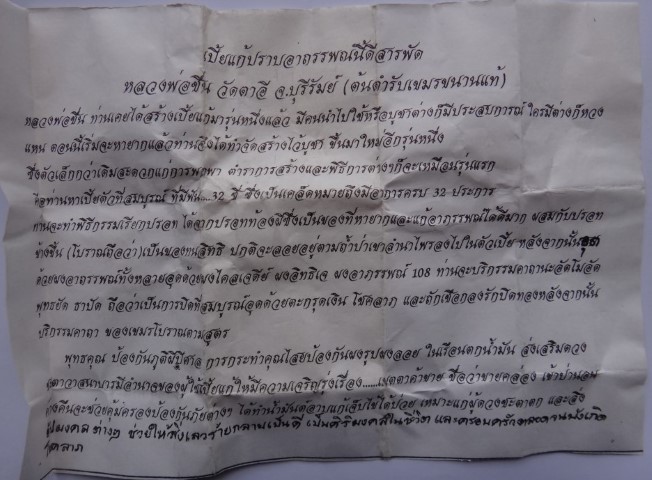 เบี้ยแก้ปราบอาถรรพณ์นี้ดีสารพัด
หลวงพ่อชื่น วัดตาอี จ.บุรีรัมย์ (ต้นตำรับเขมรขนานแท้)
หลวงพ่อชื่น ท่านเคยได้สร้างเบี้ยแก้มารุ่นหนึ่งแล้ว มีคนนำไปใช้หรือบูชาต่างก็มีประสบการณ์ ใครมีต่างก็หวง
แหน ตอนนี้เริ่มจะหายากแล้วท่านจึงได้ทำจัดสร้างไว้บูชา ขึ้นมาใหม่อีกรุ่นหนึ่ง
ซึ่งตัวเล็กกว่าเดิมสะดวกแก่การพกพา ตำราการสร้างและพิธีการต่างๆก็จะเหมือนรุ่นแรก
คือท่านหาเบี้ยตัวที่สมบูรณ์ ที่มีฟัน....32 ซี่ ซึ่งเป็นเคล็ดหมายถึงมีอาการครบ 32 ประการ
ท่านจะทำพิธีกรรมเรียกปรอท ได้จากปรอทท้องผีซึ่งเป็นของที่หายากและแก้อาถรรพณ์ได้ดีมาก ผสมกับปรอท
ข้างขึ้น (โบราณถือว่า)เป็นของทนสิทธิ ปกติจะลอยอยู่ตามถ้ำป่าเขาลำเนาไพรลงไปในตัวเบี้ย หลังจากนั้นอุด
ด้วยผงอาถรรพณ์ทั้งหลายอุดด้วยผงไคลเจดีย์ ผงอิทธิเจ ผงอาถรรพณ์ 108 ท่านจะบริกรรมคาถานะอัดโมอัด
พุทธยัด ธาปัด ถือว่าเป็นการปิดที่สมบูรณ์อุดด้วยตะกรุดเงิน โชคลาภ และถักเชือกลงรักปิดทองหลังจากนั้น
บริกรรมคาถา ของเขมรโบราณตามสูตร
พุทธคุณ ป้องกันภูติผีปีศาจ การกระทำคุณไสยป้องกันผงรูปผงลอย ในเรือนตกน้ำมัน ส่งเสริมดวง
ชะตาวาสนาบารมีอำนาจของผู้ใช้เบี้ยแก้ให้มีความเจริญรุ่งเรือง......เมตตาค้าขาย ชื่อว่าขายคล่อง เข้าป่านอน
ค้างคืนจะช่วยคุ้มครองป้องกันภัยต่างๆ ได้ทำน้ำมนต์อาบแก้เจ็บไข้ได้ป่วย เหมาะแก่ผู้ดวงชะตาตก และสิ่ง
อัปมงคล ต่างๆ ช่วยให้สิ่งเลวร้ายกลายเป็นดี เป็นศิริมงคลในชีวิต และครอบครัวตลอดจนบังเกิด
โชคลาภ